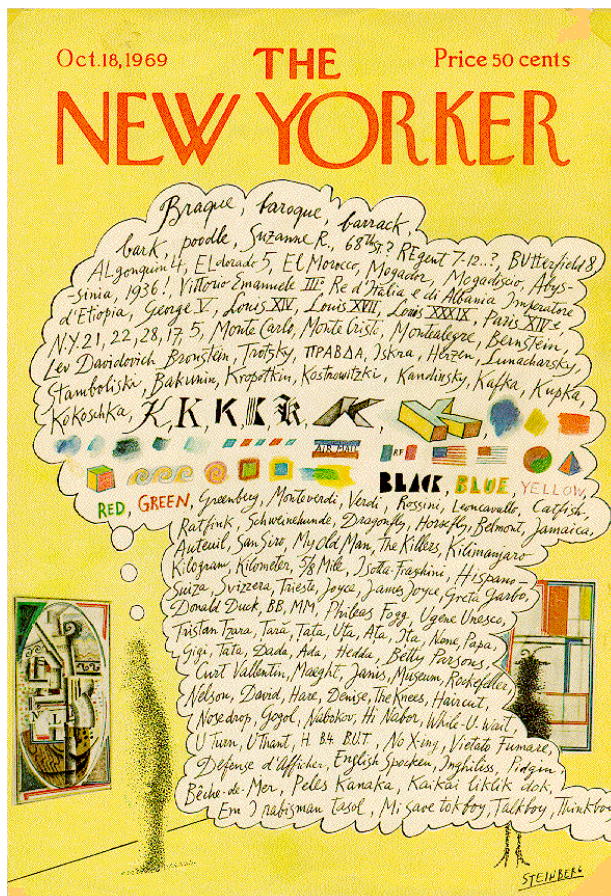 Oct. 18, 1969
THE
Price 50 cents
NEW YORKER
Braque, baroque, barrack,
bark, poodle, Suzanne R., 68th St? REgent 7-12...?, BUtterfield 8,
ALgonquin 4, ELdorado 5, El Morocco, Mogador, Mogadiscio, Abys-
-sinia, 1936! Vittorio Emanuele III: Re d'Italia e di Albania Imperatore
d'Etiopia, George V, Louis XIV, Louis XVII, Louis XXXIX, Paris XIVe,
N.Y. 21, 22, 28, 17, 5, Monte Carlo, Monte Cristi, Montealegre, Bernstein
Lev Davidovich Bronstein, Trotzky, ПРАВДА, Iskra, Herzen, Lunacharsky,
Stamboliski, Bakunin, Kropotkin, Kostrowitzki, Kandinsky, Kafka, Kupka,
Kokoschka, K, K, K, K, K, K, K,
AIR MAIL RF
BLACK, BLUE, YELLOW,
RED, GREEN, Greenberg, Monteverdi, Verdi, Rossini, Leoncavallo, Catfish
Ratfink, Schweinehunde, Dragonfly, Horsefly, Belmont, Jamaica,
Auteuil, San Siro, My Old Man, The Killers, Kilimanjaro
Kilogram, Kilometer, 5/8 Mile, Isotta-Fraschini, Hispano-
Suiza, Svizzera, Trieste, Joyce, James Joyce, Greta Garbo,
Donald Duck, BB, MM, Phileas Fogg, Ugene Unesco,
Tristan Tzara, Tara, Tata, Uta, Ata, Ita, None, Papa,
Gigi, Tata, Dada, Ada, Hedda, Betty Parsons,
Curt Vallentin, Maeght, Janis, Museum, Rockefeller,
Nelson, David, Hare, Denise, The Knees, Haircut,
Nosedrop, Gogol, Nabokov, Hi Nabor, While-U-Wait
U Turn, U Thant, H. B4. BUT., No X-ing, Vietato Fumare,
Défense d'Afficher, English Spocken, Inghiliss, Pidgin,
Bêche-de-Mer, Peles Kanaka, Kaikai liklik dok,
Em I rabisman tasol, Mi save tok boy, Talkboy, Thinkboy
STEINBERG